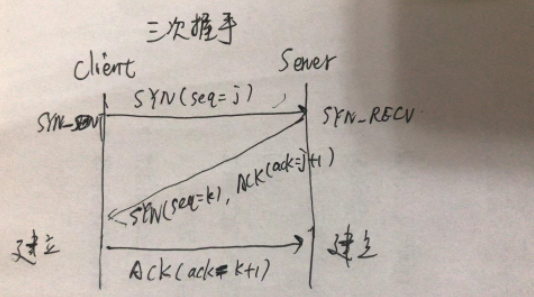 三次握手
Client
Server
SYN(seq=j)
SYN_SENT
SYN_RECV
SYN(seq=k), ACK(ack=j+1)
建立
建立
ACK(ack=k+1)